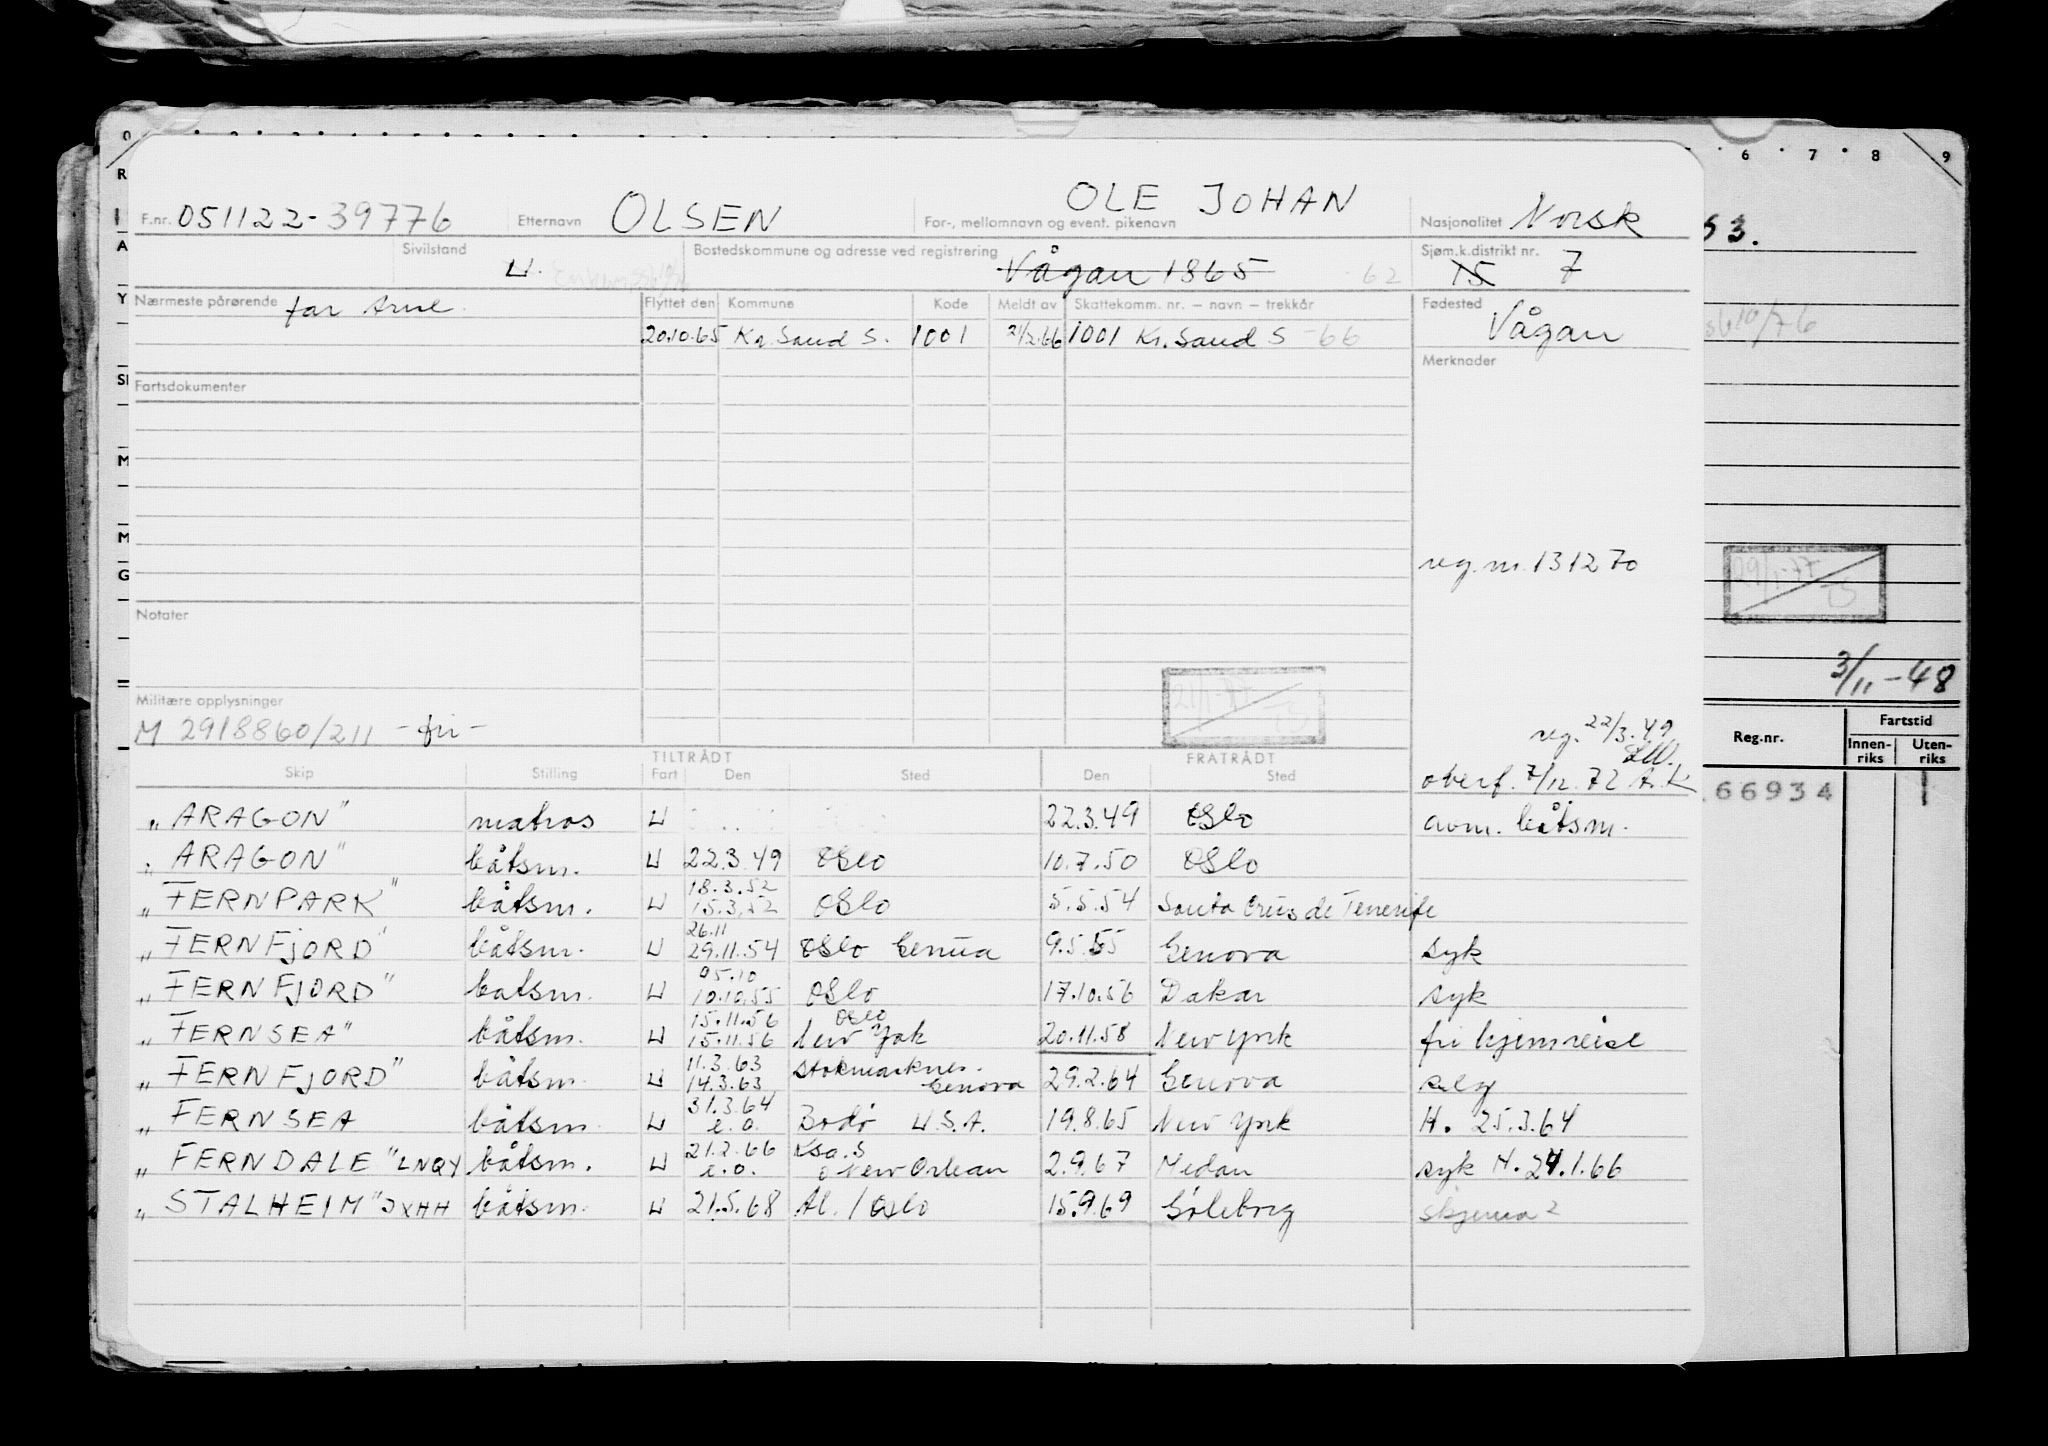 6 7 8 9
F.nr. 051122-39776 Etternavn OLSEN For-, mellomnavn og event. pikenavn OLE JOHAN Nasjonalitet Norsk
Sivilstand U. Bostedskommune og adresse ved registrering Vågan 1865 62 Sjøm.k.distrikt nr. 15 7
Nærmeste pårørende far Arne. Flyttet den Kommune Kode Meldt av Skattekomm. nr. – navn – trekkår Fødested Vågan
20.10.65 Kr. Sand S. 1001 21/2.66 1001 Kr. Sand S -66
Fartsdokumenter
Merknader
reg. nr. 131270
Notater
Militære opplysninger
M 2918860/211 -fri-
21/1-77
29/1-77
3/11-48
reg. 22/3.49
overf. 7/12.72 A.K
Reg.nr. Fartstid
Innen- riks Uten- riks
66934 1
TILTRÅDT FRATRÅDT
Skip Stilling Fart Den Sted Den Sted
„ARAGON" matros U 22.3.49 Oslo avm. båtsm.
„ARAGON" båtsm. U 22.3.49 Oslo 10.7.50 Oslo
18.3.52
„FERNPARK" båtsm. U 15.3.52 Oslo 5.5.54 Santa Crus de Tenerife
26.11
„FERNFJORD" båtsm. U 29.11.54 Oslo Genua 9.5.55 Genova syk
05.10
„FERNFJORD" båtsm. U 10.10.55 Oslo 17.10.56 Dakar syk
15.11.56 Oslo
„FERNSEA" båtsm. U 15.11.56 New York 20.11.58 New York fri hjemreise
11.3.63 Stokmarknes.
„FERNFJORD" båtsm. U 14.3.63 Genova 29.2.64 Genova selg
31.3.64
„FERNSEA båtsm. U e.o. Bodø U.S.A. 19.8.65 New York H. 25.3.64
21.2.66 Ksa. S
„FERNDALE" LNQY båtsm. U e.o. New Orlean 2.9.67 Medan syk H. 24.1.66
„STALHEIM" JXHH båtsm. U 21.5.68 Al. / Oslo 15.9.69 Gøteborg skjema 2